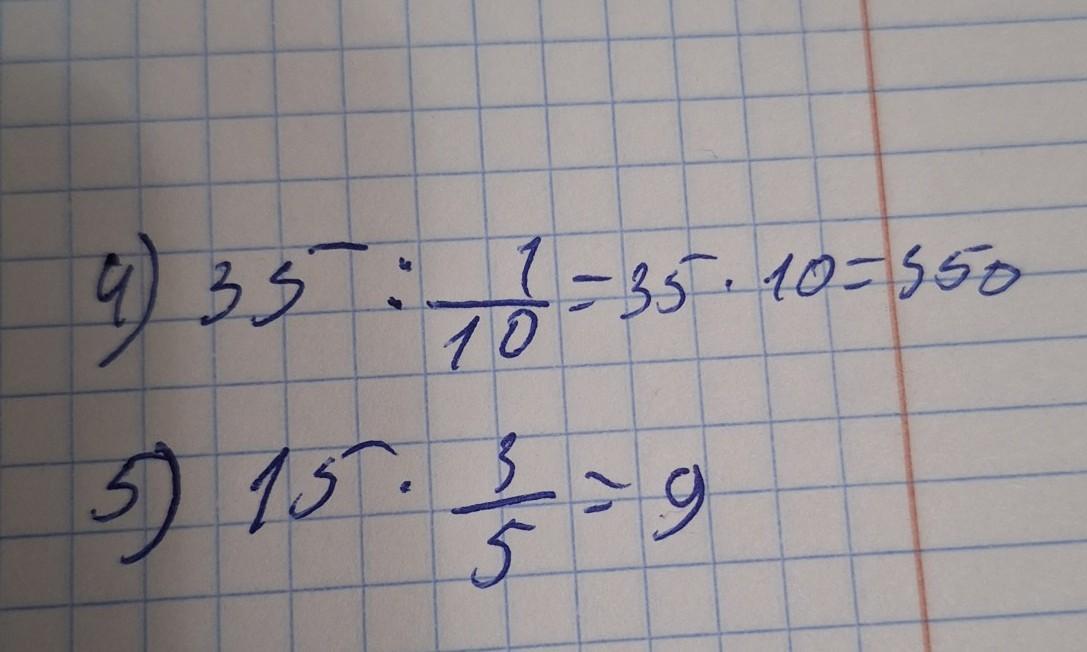 4) 35 : 1/10 = 35 · 10 = 350
5) 15 · 3/5 = 9